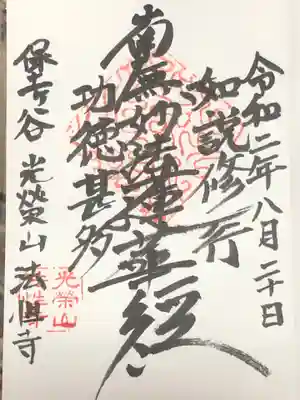 令和二年八月二十日
如説修行
南無妙法蓮華經
功徳甚多
保土谷 光榮山 法性寺
光榮山